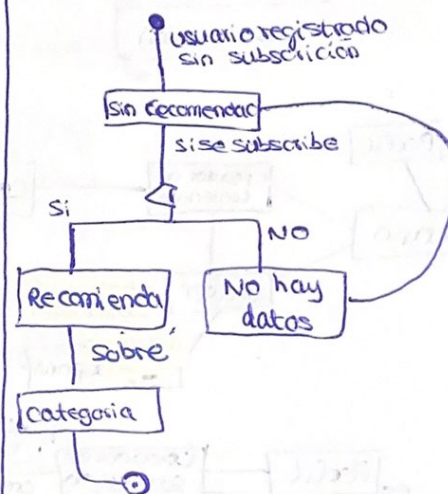 usuario registrado
sin subscrición
sin recomendac
si se subscribe
Si
NO
Recomienda
No hay
datos
sobre
categoria